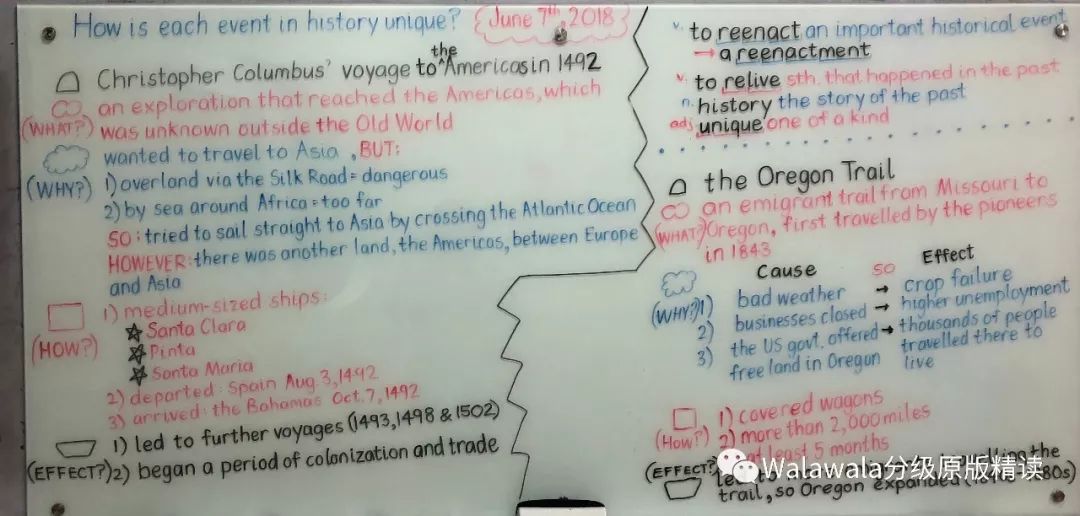 How is each event in history unique?
June 7th, 2018
Christopher Columbus' voyage to the Americas in 1492
(WHAT?) an exploration that reached the Americas, which
was unknown outside the Old World
(WHY?) wanted to travel to Asia, BUT:
1) overland via the Silk Road = dangerous
2) by sea around Africa = too far
SO: tried to sail straight to Asia by crossing the Atlantic Ocean
HOWEVER: there was another land, the Americas, between Europe
and Asia
(HOW?) 1) medium-sized ships:
Santa Clara
Pinta
Santa Maria
2) departed: Spain Aug. 3, 1492
3) arrived: the Bahamas Oct. 7, 1492
1) led to further voyages (1493, 1498 & 1502)
(EFFECT?) 2) began a period of colonization and trade
v. to reenact an important historical event
→ a reenactment
v. to relive sth. that happened in the past
n. history the story of the past
adj. unique one of a kind
the Oregon Trail
(WHAT?) an emigrant trail from Missouri to
Oregon, first travelled by the pioneers
in 1843
Cause SO Effect
(WHY?) 1) bad weather → crop failure
2) businesses closed → higher unemployment
3) the US govt. offered → thousands of people
free land in Oregon travelled there to
live
1) covered wagons
(How?) 2) more than 2,000 miles
at least 5 months
(EFFECT?) the
trail, so Oregon expanded
Walawala分级原版精读